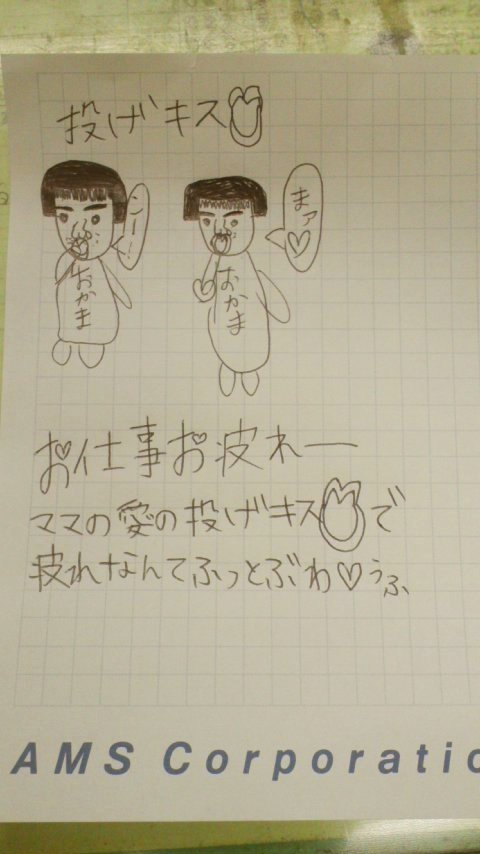 投げキス
ンー
まァ♡
おかま
おかま
お仕事お疲れー
ママの愛の投げキスで
疲れなんてふっとぶわ♡うふ
AMS Corporatio